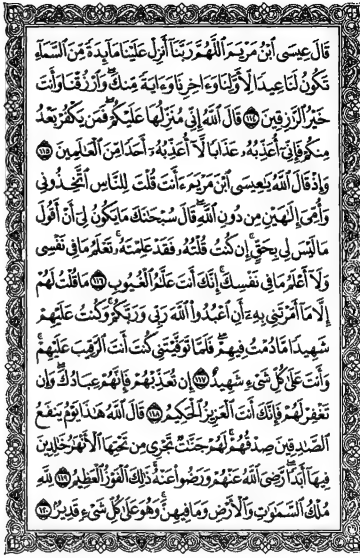 قَالَ عِيسَى ٱبْنُ مَرْيَمَ ٱللَّهُمَّ رَبَّنَآ أَنزِلْ عَلَيْنَا مَآئِدَةً مِّنَ ٱلسَّمَآءِ
تَكُونُ لَنَا عِيدًا لِّأَوَّلِنَا وَءَاخِرِنَا وَءَايَةً مِّنكَ وَٱرْزُقْنَا وَأَنتَ
خَيْرُ ٱلرَّٰزِقِينَ ١١٤ قَالَ ٱللَّهُ إِنِّى مُنَزِّلُهَا عَلَيْكُمْ فَمَن يَكْفُرْ بَعْدُ
مِنكُمْ فَإِنِّىٓ أُعَذِّبُهُۥ عَذَابًا لَّآ أُعَذِّبُهُۥٓ أَحَدًا مِّنَ ٱلْعَٰلَمِينَ ١١٥
وَإِذْ قَالَ ٱللَّهُ يَٰعِيسَى ٱبْنَ مَرْيَمَ ءَأَنتَ قُلْتَ لِلنَّاسِ ٱتَّخِذُونِى
وَأُمِّىَ إِلَٰهَيْنِ مِن دُونِ ٱللَّهِ ۖ قَالَ سُبْحَٰنَكَ مَا يَكُونُ لِىٓ أَنْ أَقُولَ
مَا لَيْسَ لِى بِحَقٍّ ۚ إِن كُنتُ قُلْتُهُۥ فَقَدْ عَلِمْتَهُۥ ۚ تَعْلَمُ مَا فِى نَفْسِى
وَلَآ أَعْلَمُ مَا فِى نَفْسِكَ ۚ إِنَّكَ أَنتَ عَلَّٰمُ ٱلْغُيُوبِ ١١٦ مَا قُلْتُ لَهُمْ
إِلَّا مَآ أَمَرْتَنِى بِهِۦٓ أَنِ ٱعْبُدُوا۟ ٱللَّهَ رَبِّى وَرَبَّكُمْ ۚ وَكُنتُ عَلَيْهِمْ
شَهِيدًا مَّا دُمْتُ فِيهِمْ ۖ فَلَمَّا تَوَفَّيْتَنِى كُنتَ أَنتَ ٱلرَّقِيبَ عَلَيْهِمْ ۚ
وَأَنتَ عَلَىٰ كُلِّ شَىْءٍ شَهِيدٌ ١١٧ إِن تُعَذِّبْهُمْ فَإِنَّهُمْ عِبَادُكَ ۖ وَإِن
تَغْفِرْ لَهُمْ فَإِنَّكَ أَنتَ ٱلْعَزِيزُ ٱلْحَكِيمُ ١١٨ قَالَ ٱللَّهُ هَٰذَا يَوْمُ يَنفَعُ
ٱلصَّٰدِقِينَ صِدْقُهُمْ ۚ لَهُمْ جَنَّٰتٌ تَجْرِى مِن تَحْتِهَا ٱلْأَنْهَٰرُ خَٰلِدِينَ
فِيهَآ أَبَدًا ۚ رَّضِىَ ٱللَّهُ عَنْهُمْ وَرَضُوا۟ عَنْهُ ۚ ذَٰلِكَ ٱلْفَوْزُ ٱلْعَظِيمُ ١١٩ لِلَّهِ
مُلْكُ ٱلسَّمَٰوَٰتِ وَٱلْأَرْضِ وَمَا فِيهِنَّ ۚ وَهُوَ عَلَىٰ كُلِّ شَىْءٍ قَدِيرٌۢ ١٢٠